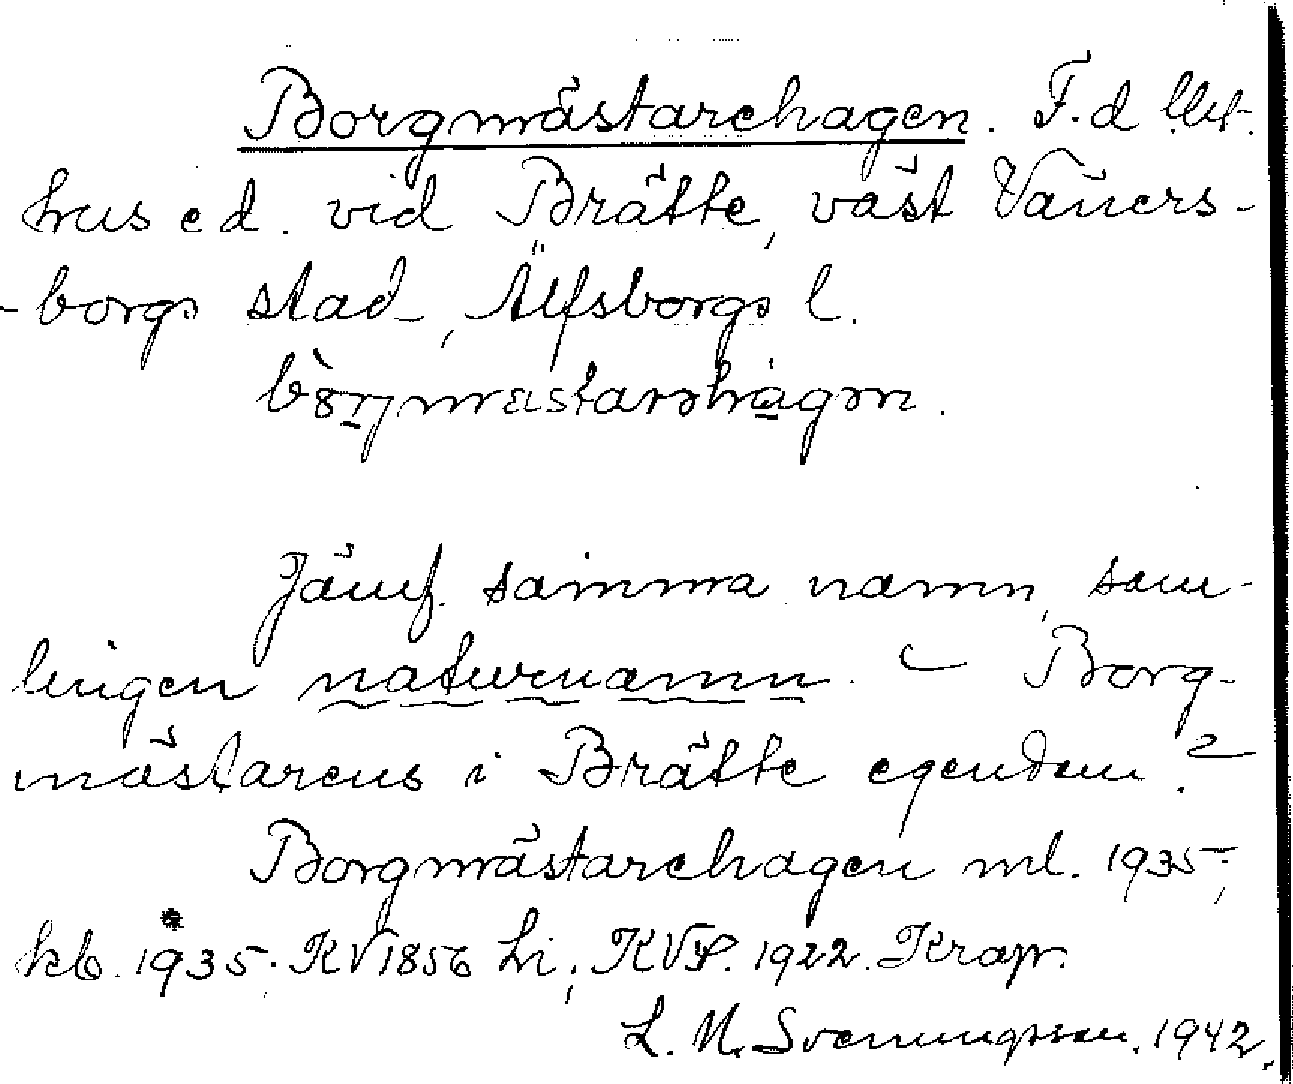 Borgmästarehagen. F.d
hus e d. vid Brätte, väst Väners-
-borgs stad, Älfsborgs l.
Jämf. samma namn, sam-
lingen naturnamn. – Borg-
mästarens i Brätte egendom?
Borgmästarehagen ml. 1935;
kb. 1935. KV 1856 Li; KVP. 1922. Krap.
L. M. Svenungsson. 1942.